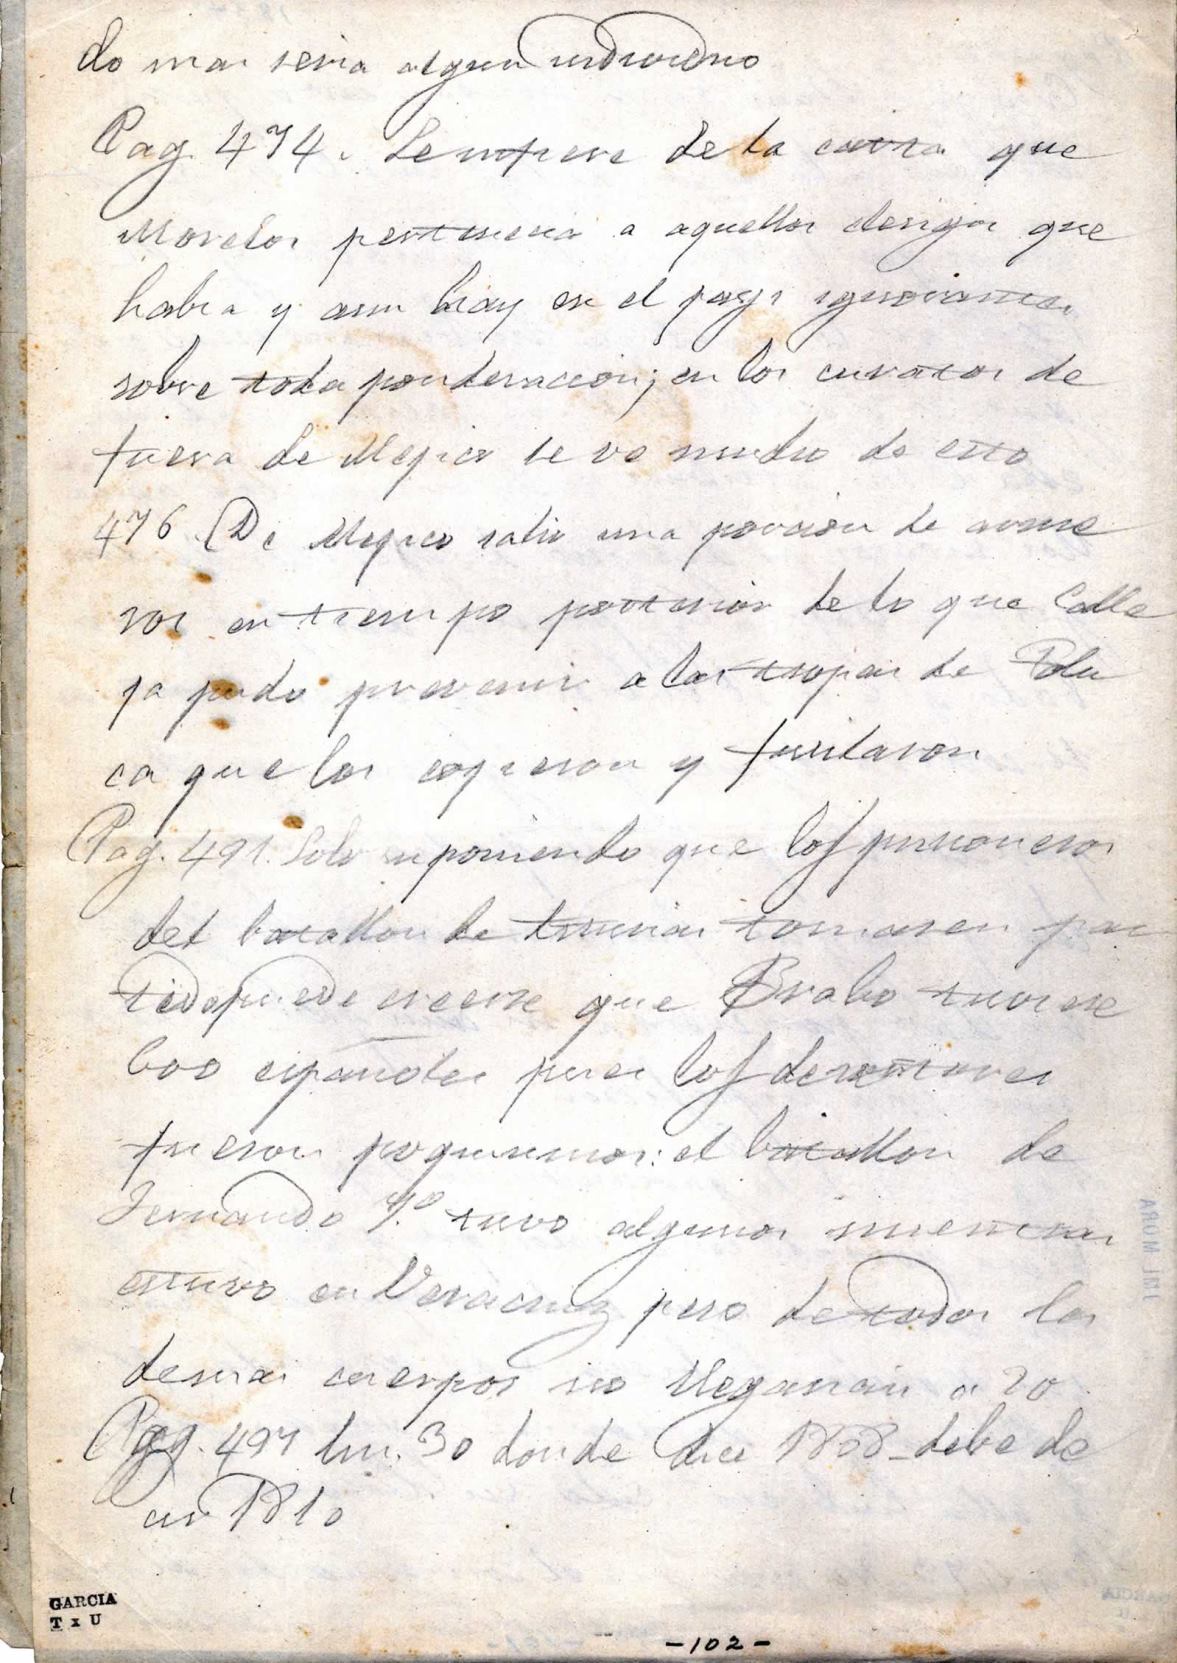 do mas seria algun
Pag. 474. Se infiere de la carta que
Morelos pertenecia a aquellos clerigos que
habia y aun hay en el pays ignorantes
sobre toda ponderacion; en los curatos de
fuera de Megico se ve mucho de esto
476 De Megico salio una porcion de arme
ros en tiempo posterior de lo que Calle
ja pudo prevenir a las tropas de Tolu
ca que los cogieron y fusilaron
Pag. 491. Solo suponiendo que los prisioneros
del batallon de Asturias tomasen par
tido puede creerse que Brabo tuviese
600 españoles pues los desertores
fueron poquisimos: el batallon de
Fernando 7º tuvo algunos mientras
estuvo en Veracruz pero de todos los
demas cuerpos no llegarian a 20
Pag. 497 lin. 30 donde dice 1808 debe de
cir 1810
GARCIA
T x U
-102-